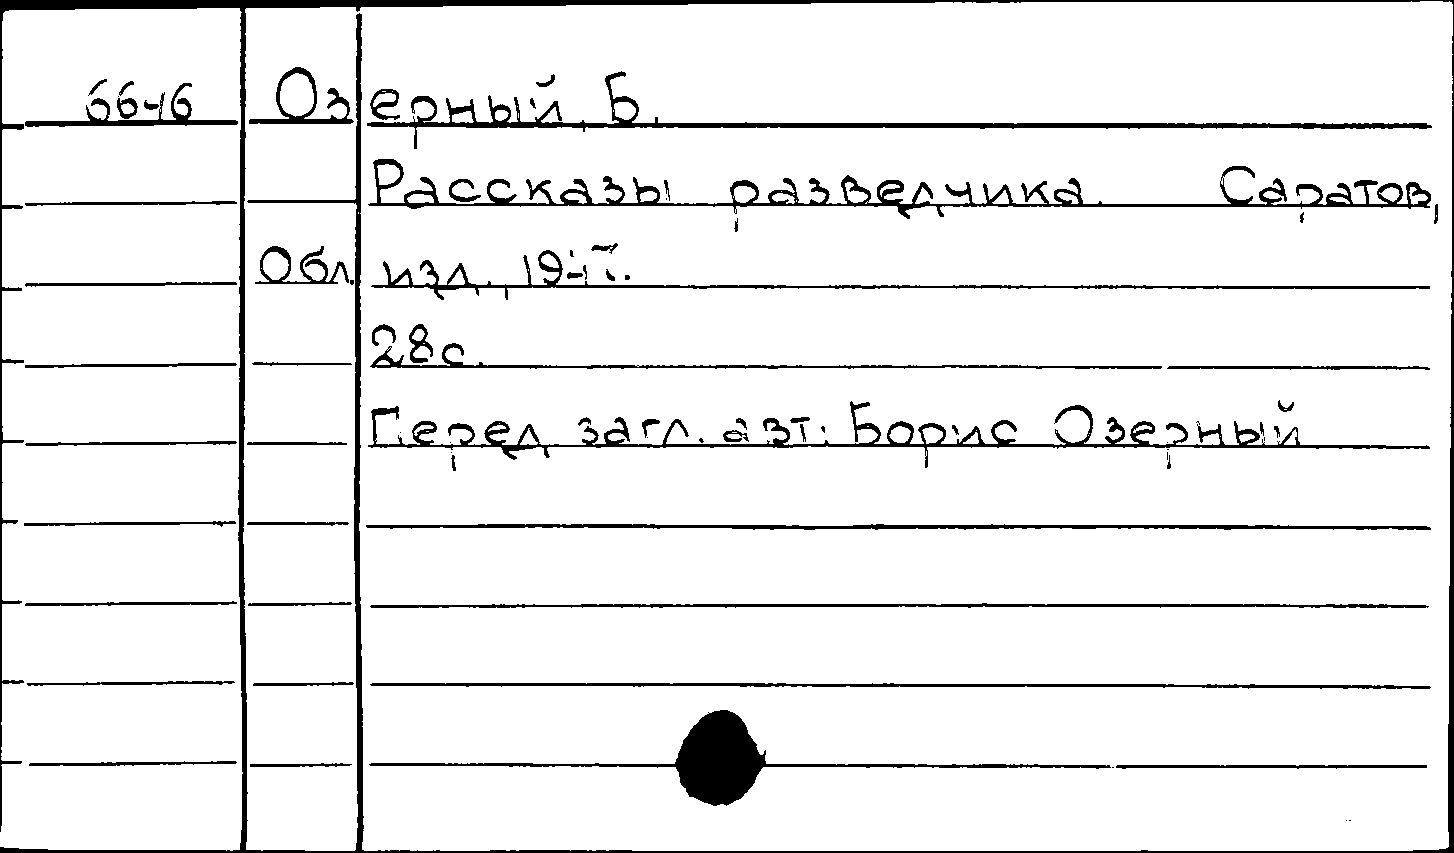 Озерный, Б.
Рассказы разведчика. Саратов,
Обл. изд.,
28с.
Перед загл. авт.: Борис Озерный